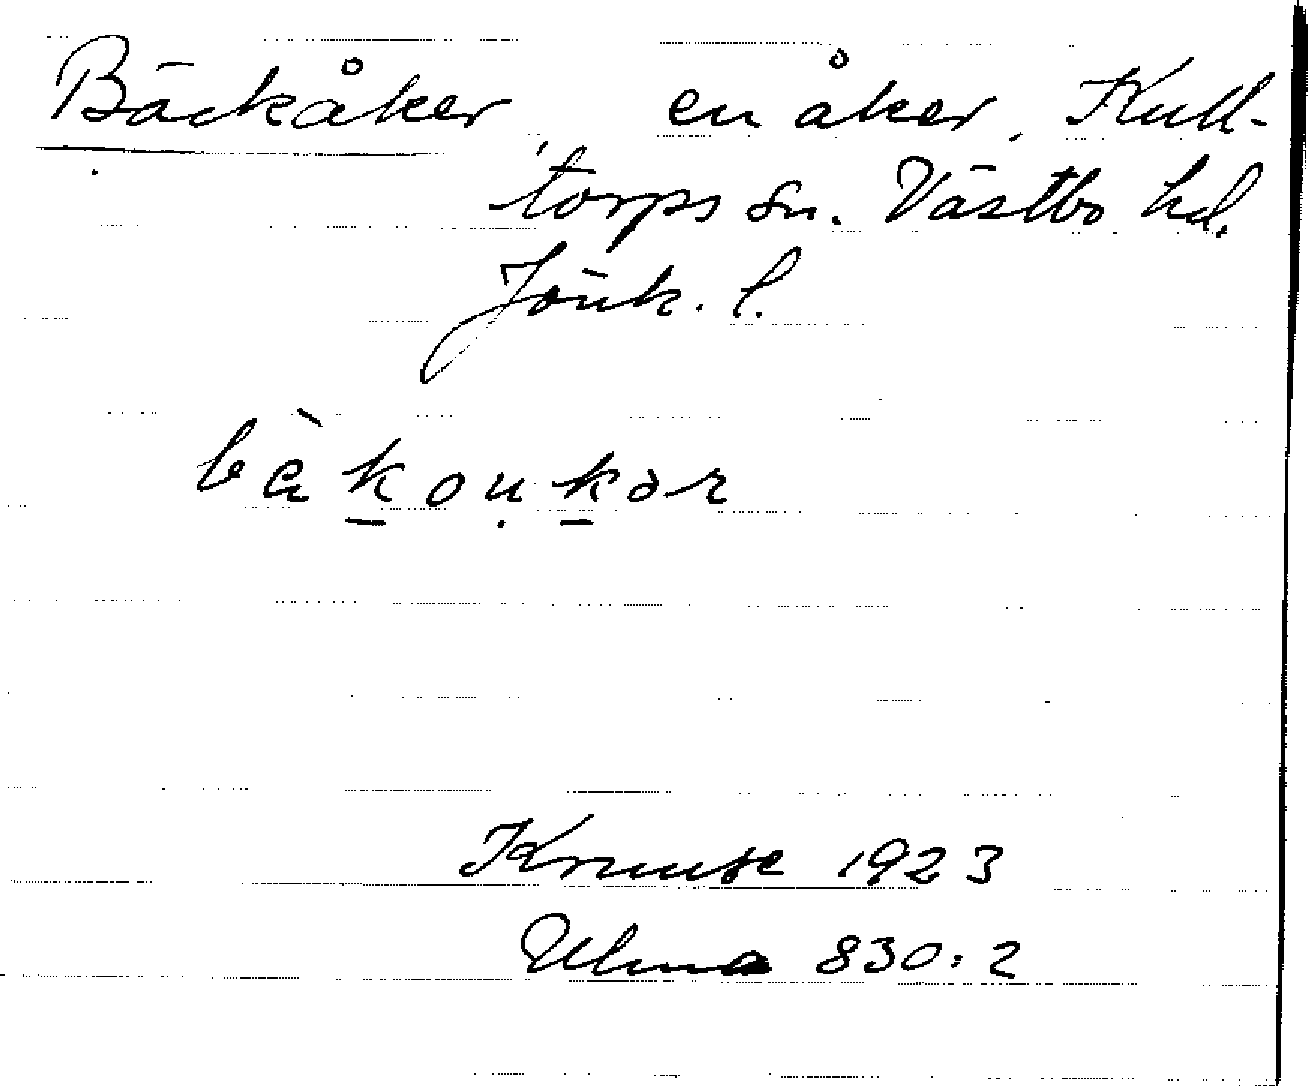 Bäckåker, en åker, Kull-
torps sn. Västbo hd.
Jönk. l.
bàkoukər
Kruuse 1923
Ulma 830:2